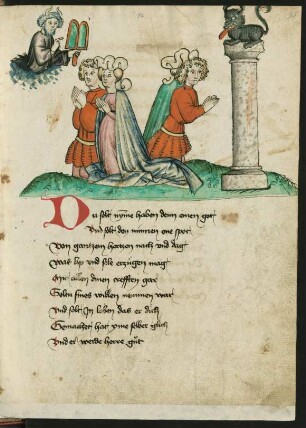 Du solt nyme haben denn einen got
Vnd solt den minnen one spot
Von ganczem herczen nacht vnd dag
Was lip vnd sele erzúgen mag
Mit allen dinen krefften gar
Soltu sines willen nemmen war
Vnd solt In loben das er dich
Gemachet hat yme selber glich
Vnd er werde herre gůt